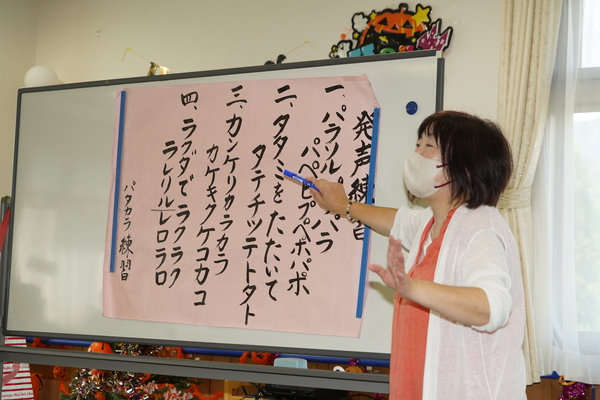 発声練習
一、パラソルパラパラ
パペピプペポパポ
二、タタミをたたいて
タテチツテトタト
三、カンケリカラカラ
カケキクケコカコ
四、ラクダでラクラク
ラレリルレロラロ
パタカラ練習